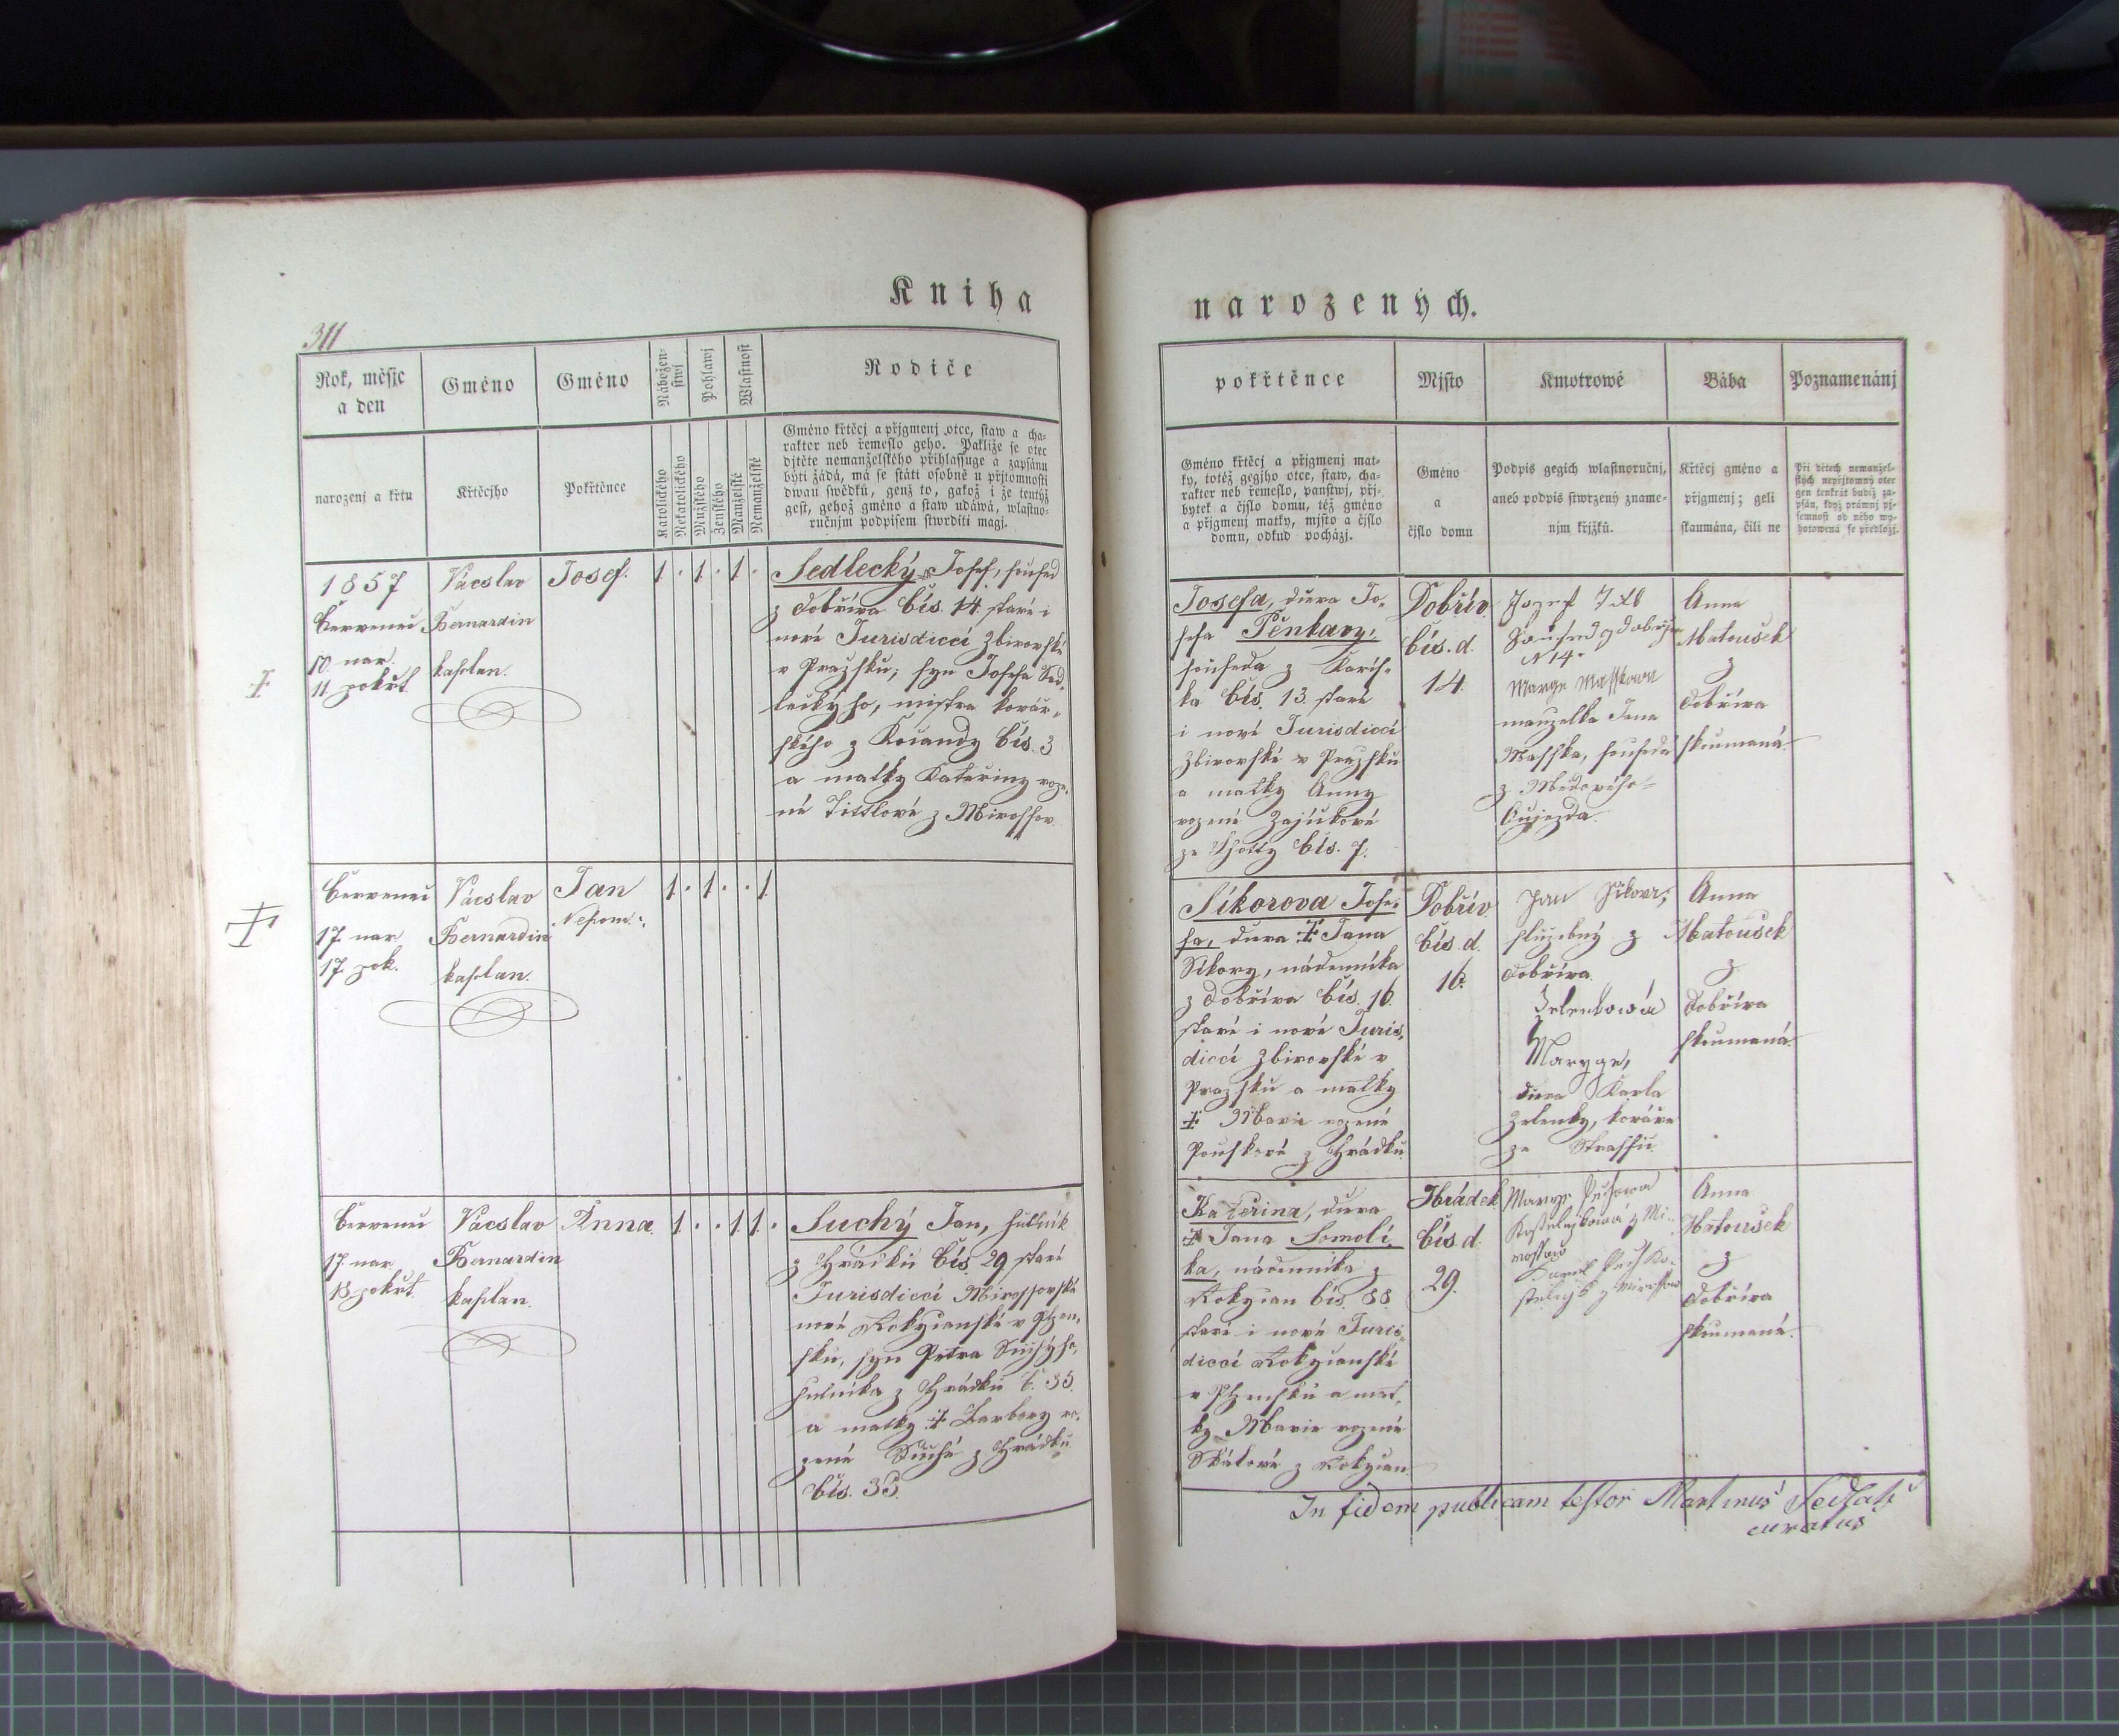 Kniha
narozených.
311
Rok, měsjc
a den
Gméno
Gméno
Nábožen-
stwj
Pohlawj
Wlastnost
Rodiče
narozenj a křtu
Křtěcjho
Pokřtěnce
Katolického
Nekatolického
Mužského
Ženského
Manželské
Nemanželské
Gméno křtěcj a přjgmenj otce, staw a cha-
rakter neb řemeslo geho. Pakliže se otec
djtěte nemanželského přihlassuge a zapsánu
býti žádá, má se státi osobně u přjtomnosti
dwau swědků, genž to, gakož i že tentýž
gest, gehož gméno a staw udáwá, wlastno-
ručnjm podpisem stwrditi magj.
1857
Července
10. nar.
11 pokřt.
Vácslav
Bernardin
kaplan.
Josef.
1 . 1 . 1 .
Sedlecký Josef, soused
z Dobříva čís. 14. staré i
nové Jurisdicci Zbirovské
v Pražsku; syn Josefa Sed-
leckýho, mistra kovář-
ského z Kocandy čís. 3
a matky Kateřiny roze-
né Tittlové z Mirossov.
Července
17. nar
17. pok.
Vácslav
Bernardin
kaplan.
Jan
Nepom:
1 . 1 . . 1
Července
17. nar
18. pokřt.
Vácslav
Bernardin
kaplan.
Anna
1 . . 1 1 .
Suchý Jan, hutník
z Hrádku čís. 29 staré
Jurisdicci Mirossovské
nové Rokycanské v Plzen-
sku, syn Petra Suchýho,
hutníka z Hrádku č. 35.
a matky ‡ Barbory ro-
zené Suché z Hrádku
čís. 35.
pokřtěnce
Mjsto
Kmotrowé
Bába
Poznamenánj
Gméno křtěcj a přjgmenj mat-
ky, totéž gegjho otce, staw, cha-
rakter neb řemeslo, panstwj, přj-
bytek a čjslo domu, též gméno
a přjgmenj matky, mjsto a čjslo
domu, odkud pocházj.
Gméno
a
čjslo domu
Podpis gegich wlastnoručnj,
aneb podpis stwrzený zname-
njm křjžků.
Křtěcj gméno a
přjgmenj; geli
skaumána, čili ne
Při dětech nemanžel-
ských nepřjtomný otec
gen tenkrát budiž za-
psán, když práwnj pj-
semnost od něho wy-
hotowená se předložj.
Josefa, dcera Jo-
sefa Pěnkavy,
souseda z Kařís-
ka čís. 13. staré
i nové Jurisdicci
Zbirovské v Pražsku
a matky Anny
rozené Zajícové
ze Lhotty čís. 7.
Dobřív
čís. d.
14.
Jozef
Soused z Dobřjva
N 14.
Marye Masskowa
manzelka Jana
Masska, souseda
z Medového-
Aujezda.
Anna
Matousek
z
Dobříva
skoumaná.
Síkorova Jose-
fa, dcera ‡ Jana
Síkory, nádenníka
z Dobříva čís. 16.
staré i nové Juris-
dicci Zbirovské v
Pražsku a matky
‡ Marie rozené
Pouskové z Hrádku.
Dobřív
čís. d.
16.
Jan Sikora,
služebný z
Dobříva.
Zelenkowá
Marye,
dcera Karla
Zelenky, kováře
ze Strassic.
Anna
Matousek
z
Dobříva
skoumaná.
Kateřina, dcera
‡ Jana Somoli-
ka, nádenníka z
Rokycan čís. 88.
staré i nové Juris-
dicci Rokycanské
v Plzensku a mat-
ky Marie rozené
Skálové z Rokycan.
Hrádek
čís. d.
29.
Marye Pechowa
Kostelnjkowá z Mi-
rossow
Karel Pech Ko-
stelnjk z Mirossow
Anna
Matousek
z
Dobříva
skoumaná.
In fidem publicam testor Martinus Sedlak
curatus